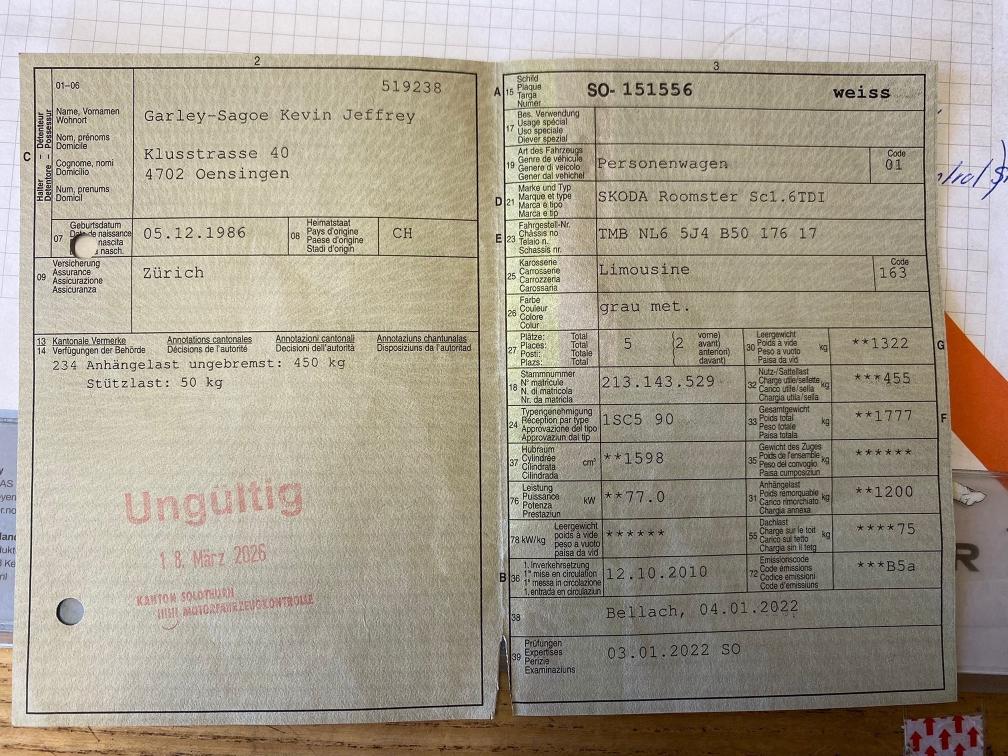 2
01-06
519238
Halter – Détenteur
Detentore – Possessur
C
Name, Vornamen
Wohnort
Nom, prénoms
Domicile
Cognome, nomi
Domicilio
Num, prenums
Domicil
Garley-Sagoe Kevin Jeffrey
Klusstrasse 40
4702 Oensingen
07 Geburtsdatum
Date de naissance
nascita
nasch.
05.12.1986
08 Heimatstaat
Pays d'origine
Paese d'origine
Stadi d'origin
CH
09 Versicherung
Assurance
Assicurazione
Assicuranza
Zürich
13 Kantonale Vermerke Annotations cantonales Annotazioni cantonali Annotaziuns chantunalas
14 Verfügungen der Behörde Décisions de l'autorité Decisioni dell'autorità Disposiziuns da l'autoritad
234 Anhängelast ungebremst: 450 kg
Stützlast: 50 kg
Ungültig
18. März 2026
KANTON SOLOTHURN
MOTORFAHRZEUGKONTROLLE
3
A 15 Schild
Plaque
Targa
Numer
SO- 151556 weiss
17 Bes. Verwendung
Usage spécial
Uso speciale
Diever spezial
19 Art des Fahrzeugs
Genre de véhicule
Genere di veicolo
Gener dal vehichel
Personenwagen
Code
01
D 21 Marke und Typ
Marque et type
Marca e tipo
Marca e tip
SKODA Roomster Sc1.6TDI
E 23 Fahrgestell-Nr.
Châssis no
Telaio n.
Schassis nr.
TMB NL6 5J4 B50 176 17
25 Karosserie
Carrosserie
Carrozzeria
Carossaria
Limousine
Code
163
26 Farbe
Couleur
Colore
Colur
grau met.
27 Plätze: Total
Places: Total
Posti: Totale
Plazs: Total
5 (2 vorne)
avant)
anteriori)
davant)
30 Leergewicht
Poids à vide
Peso a vuoto
Paisa da vid
kg
**1322
G
18 Stammnummer
N° matricule
N. di matricola
Nr. da matricla
213.143.529
32 Nutz-/Sattellast
Charge utile/sellette
Carico utile/sella
Chargia utila/sella
kg
***455
24 Typengenehmigung
Réception par type
Approvazione del tipo
Approvaziun dal tip
1SC5 90
33 Gesamtgewicht
Poids total
Peso totale
Paisa totala
kg
**1777
F
37 Hubraum
Cylindrée
Cilindrata
Cilindrada
cm³
**1598
35 Gewicht des Zuges
Poids de l'ensemble
Peso del convoglio
Paisa cumposiziun
kg
******
76 Leistung
Puissance
Potenza
Prestaziun
kW
**77.0
31 Anhängelast
Poids remorquable
Carico rimorchiato
Chargia annexa
kg
**1200
78 kW/kg Leergewicht
poids à vide
peso a vuoto
paisa da vid
******
55 Dachlast
Charge sur le toit
Carico sul tetto
Chargia sin il tetg
kg
****75
B 36 1. Inverkehrsetzung
1re mise en circulation
1a messa in circolazione
1. entrada en circulaziun
12.10.2010
72 Emissionscode
Code émissions
Codice emissioni
Code d'emissiuns
***B5a
38
Bellach, 04.01.2022
39 Prüfungen
Expertises
Perizie
Examinaziuns
03.01.2022 SO